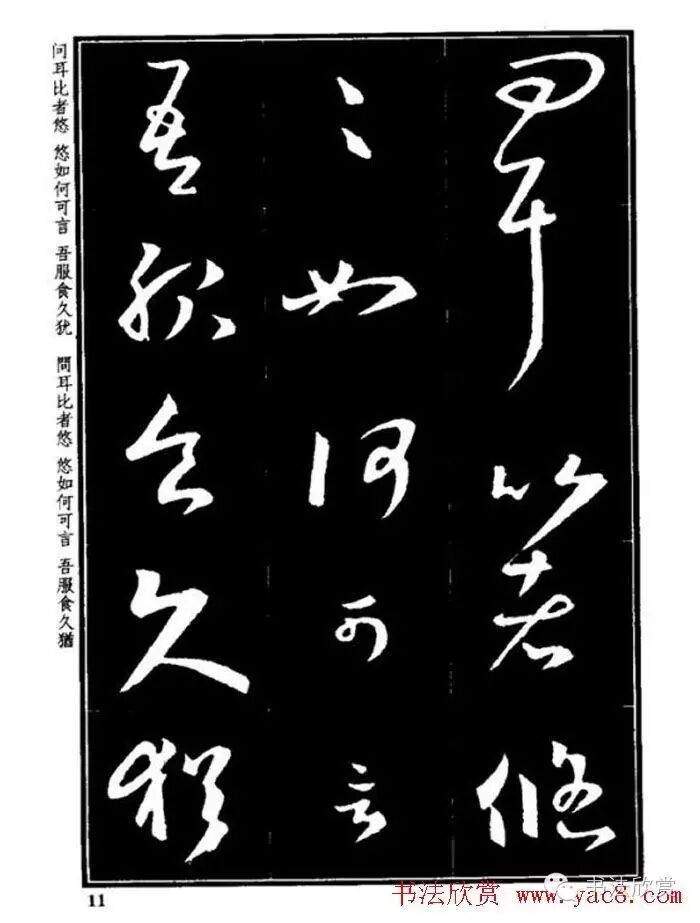 问耳比者悠
〻如何可言
吾服食久犹
问耳比者悠 悠如何可言 吾服食久犹 問耳比者悠 悠如何可言 吾服食久猶
11
书法欣赏 www.yac8.com
书法欣赏